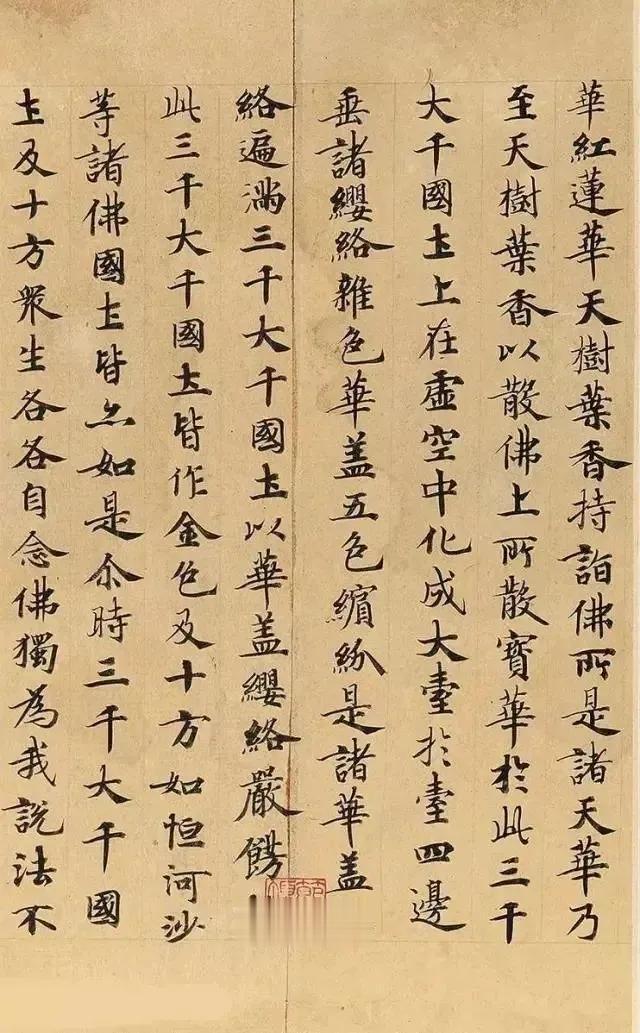 華紅蓮華天樹葉香持詣佛所是諸天華乃
至天樹葉香以散佛上所散寶華於此三千
大千國土上在虛空中化成大臺於臺四邊
垂諸纓絡雜色華盖五色繽紛是諸華盖
絡遍滿三千大千國土以華盖纓絡嚴餝
此三千大千國土皆作金色及十方如恒河沙
等諸佛國土皆亦如是尒時三千大千國
土及十方衆生各各自念佛獨為我說法不